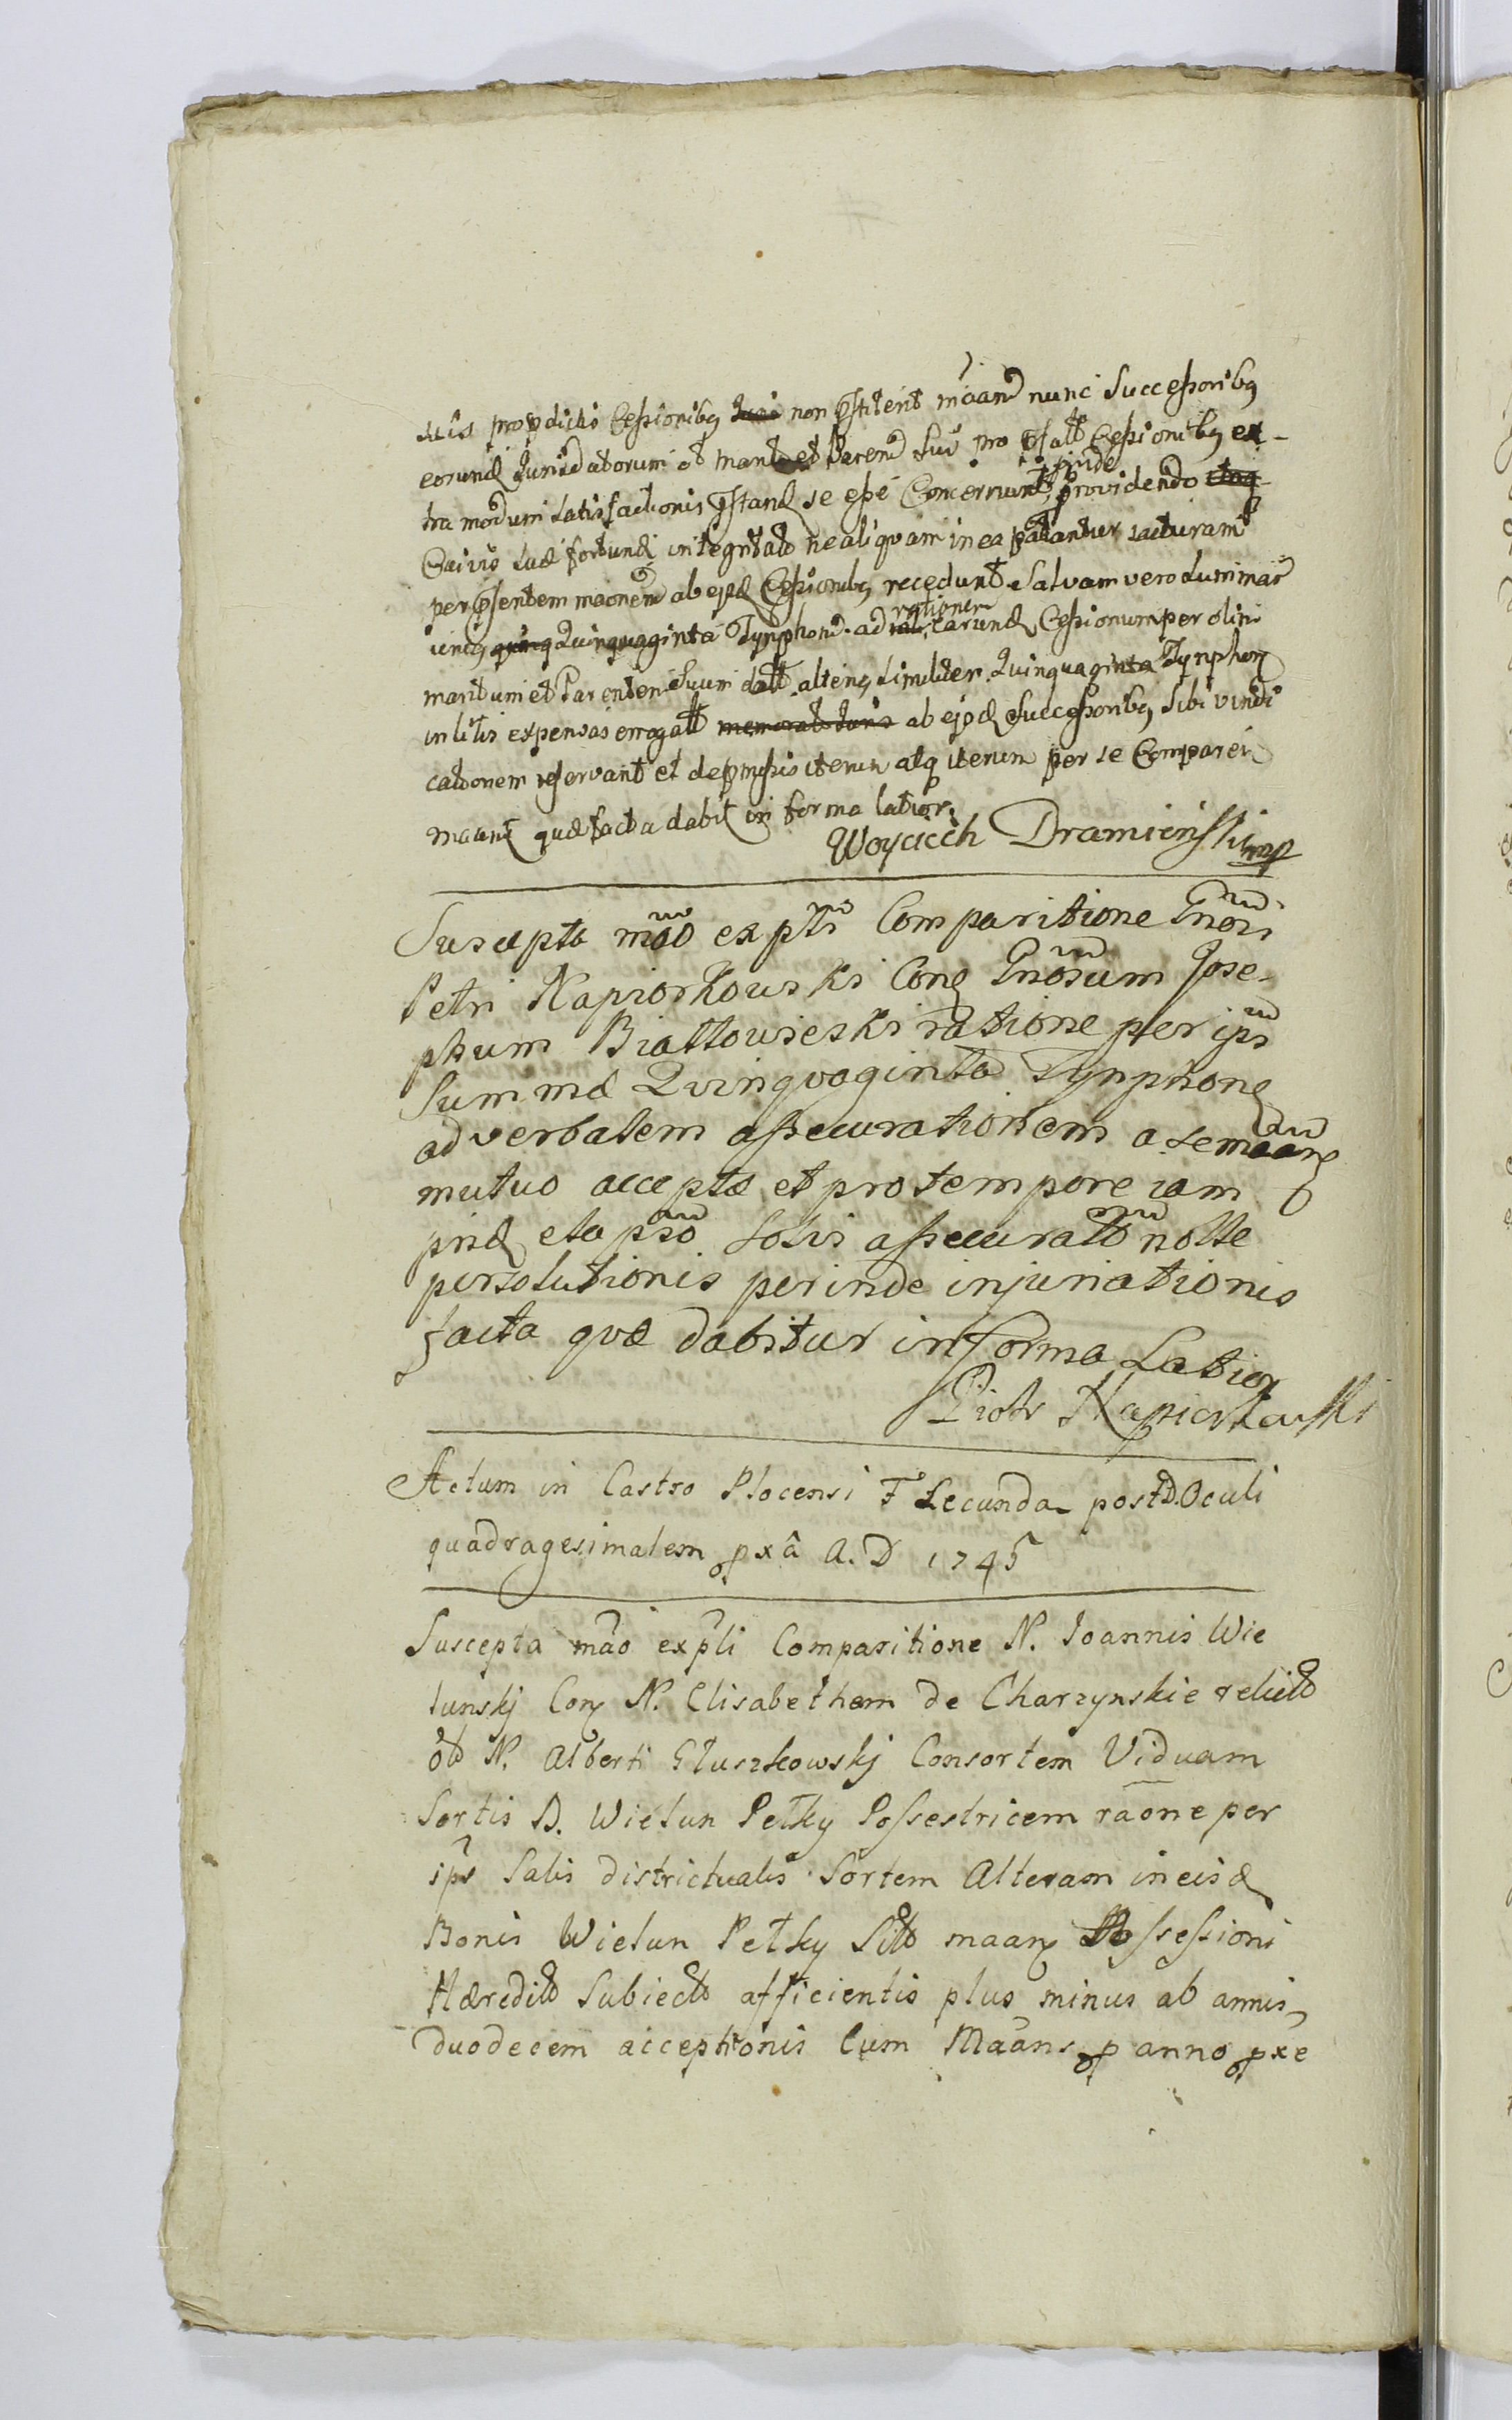 suis pro pdictis Cessionibq non pstiterit maan nunc Successoribq
eorund Jurisdatorum et marit et Parend Sui pro psatt Cessionibq ex-
tra modum satisfactionis pstand se esse Concernunt, pinde providendo
Cuivis suæ fortunæ integritatt ne aliquam in ea patiantur iacturam
per psentem maonem ab ejsd Cessionibq recedunt Salvam vero summar
uniq Quinquaginta Tynphond ad rationem earund Cessionum per olim
maritum et Parentem Suum datt alteriq similiter Quinquaginta Tynphon
in litis expensas erogatt ab ejsd Successoribq sibi vindi
cationem reservant et de pmissis iterum atq iterum per se Comparen
maant quæ facta dabit in forma latiori
Woyciech Dramiński mp
Suscepta mao ex ptis Comparitione Gnosi
Petri Napiorkowski Con Gnosum Jose-
phum Białłowieski ratione per ips
Summæ Quinquaginta Tynphon
ad verbalem assecurationem a se maan
mutuo acceptæ et pro tempore iam
prid elapso Solvi assecuratt nolle
persolutionis perinde injuriationis
facta quæ dabitur in forma Latior
Piotr Napiorkowski
Actum in Castro Plocensi F Secunda post D. Oculi
quadragesimalem pxa A. D 1745
Suscepta mao expli Comparitione N. Joannis Wie
lunskj Con N. Elisabetham de Charzynskie relictt
ol N. Alberti Głuszkowskj Consortem Viduam
Sortis B. Wielun Pełky Possestricem raone per
ips Salis districtualis Sortem Alteram in eisd
Bonis Wielun Pełky Sitt maan Possessioni
Hæreditt Subiectt afficientis plus minus ab annis
duodecem acceptionis Cum Maans p anno pxe